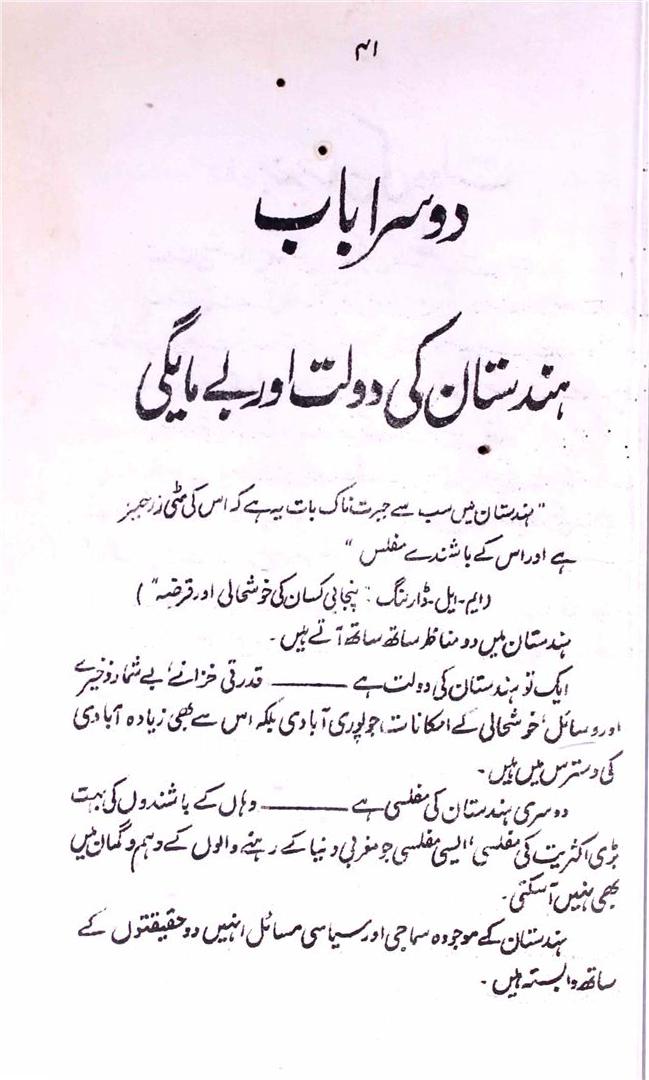 ۴۱
دوسرا باب
ہندستان کی دولت اور بے مایگی
"ہندستان میں سب سے حیرت ناک بات یہ ہے کہ اس کی مٹی زرخیز
ہے اور اس کے باشندے مفلس"
(ایم-ایل-ڈارلنگ: "پنجابی کسان کی خوشحالی اور قرضہ")
ہندستان میں دو مناظر ساتھ ساتھ آتے ہیں۔
ایک تو ہندستان کی دولت ہے ——— قدرتی خزانے، بے شمار ذخیرے
اور وسائل، خوشحالی کے امکانات، جو پوری آبادی بلکہ اس سے بھی زیادہ آبادی
کی دسترس میں ہیں۔
دوسری ہندستان کی مفلسی ہے ——— وہاں کے باشندوں کی بہت
بڑی اکثریت کی مفلسی، ایسی مفلسی جو مغربی دنیا کے رہنے والوں کے وہم و گمان میں
بھی نہیں آسکتی۔
ہندستان کے موجودہ سماجی اور سیاسی مسائل انہیں دو حقیقتوں کے
ساتھ وابستہ ہیں۔